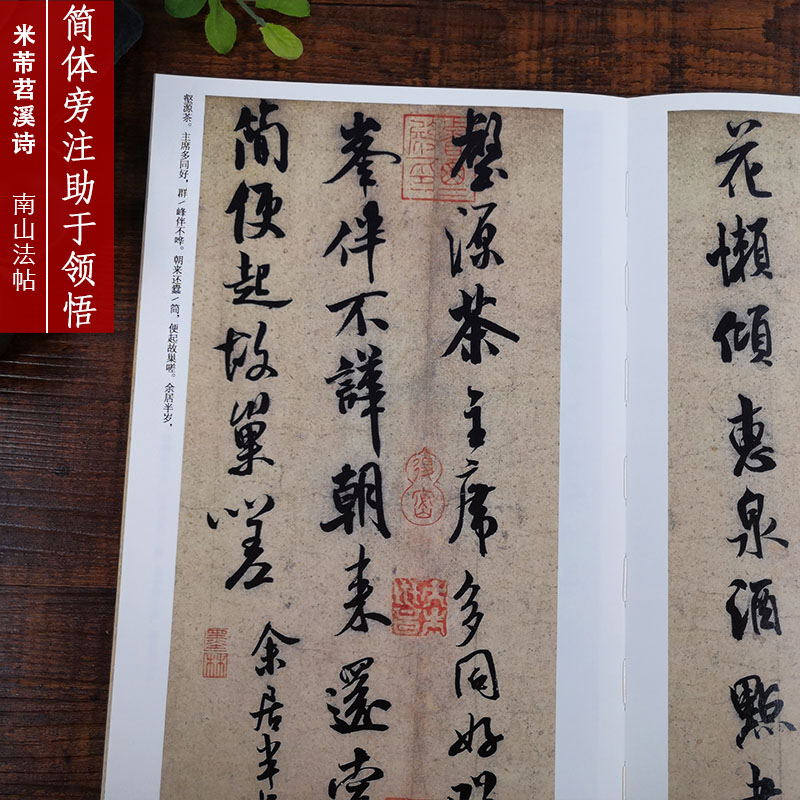 简体旁注助于领悟
米芾苕溪诗 南山法帖
花懶傾惠泉酒點
壑源茶主席多同好
峯伴不譁朝来還
簡便起故巢嗟
余居半
壑源茶。主席多同好,群/峰伴不哗。朝来还蠹/简,便起故巢嗟。余居半岁,